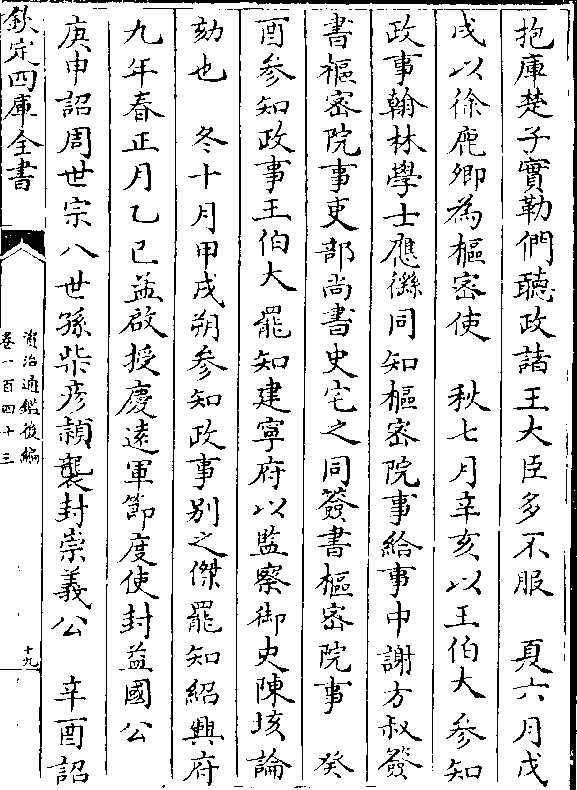 抱庫楚子實勒們聽政諸王大臣多不服　夏六月戊
戌以徐鹿卿為樞密使　秋七月辛亥以王伯大參知
政事翰林學士應㒡同知樞密院事給事中謝方叔簽
書樞密院事吏部尚書史宅之同簽書樞密院事　癸
酉參知政事王伯大罷知建寧府以監察御史陳垓論
劾也　冬十月甲戌朔參知政事别之傑罷知紹興府
九年春正月乙巳孟啟授慶逺軍節度使封益國公
庚申詔周世宗八世孫柴彦頴襲封崇義公　辛酉詔
欽定四庫全書
資治通鑑後編
卷一百四十三
十九